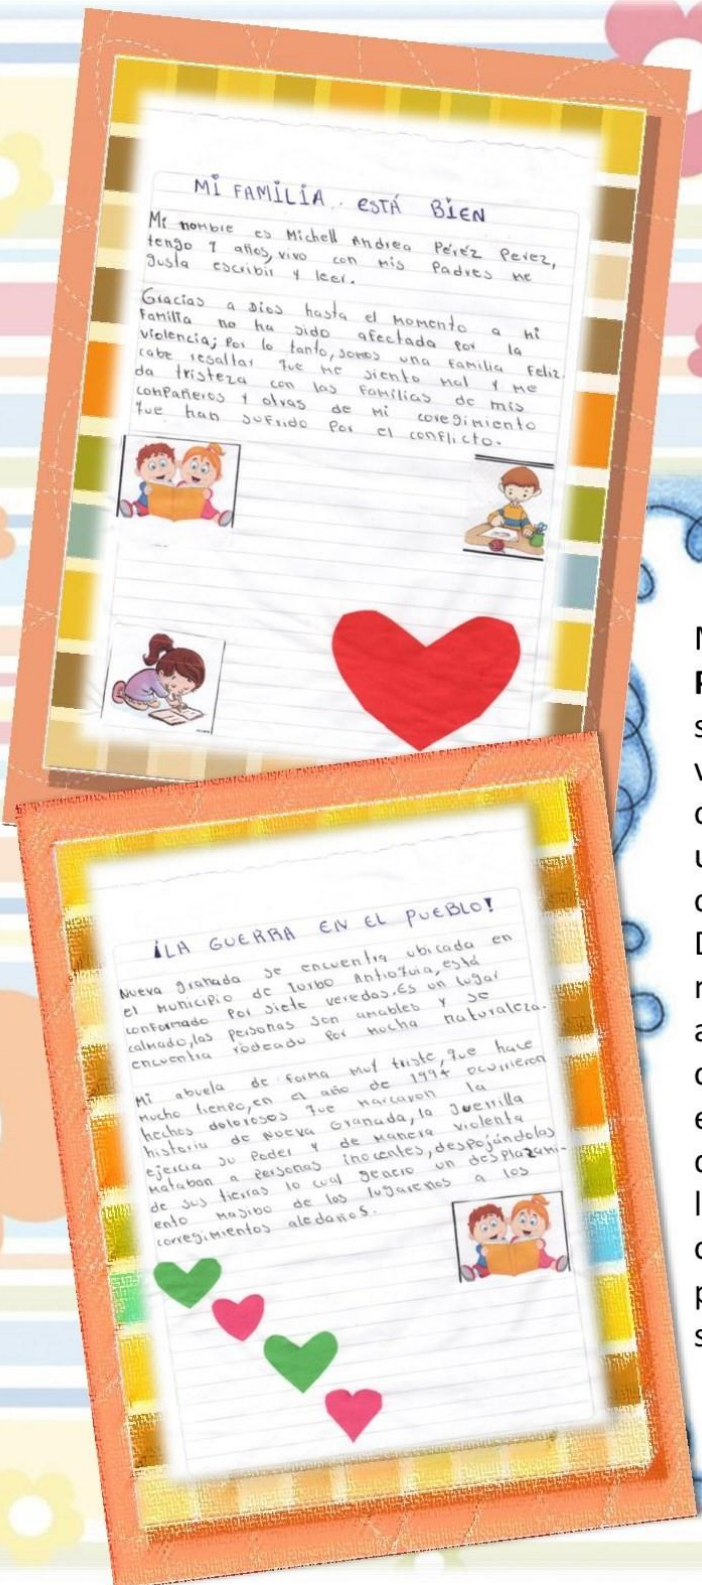 MI FAMILIA ESTÁ BIEN
Mi nombre es Michell Andrea Pérez Perez,
tengo 7 años, vivo con mis Padres me
gusta escribir y leer.
Gracias a Dios hasta el momento a mi
Familia no ha sido afectada por la
violencia; Por lo tanto, somos una familia Feliz.
cabe resaltar que me siento mal y me
da tristeza con las familias de mis
compañeros y otras de mi coregimiento
que han sufrido por el conflicto.
¡LA GUERRA EN EL PUEBLO!
Nueva granada se encuentra ubicada en
el municipio de Turbo Antioquia, está
conformado por siete veredas. Es un lugar
calmado, las personas son amables y se
encuentra rodeado por mucha naturaleza.
Mi abuela de forma muy triste, que hace
mucho tiempo, en el año de 1994 ocurrieron
hechos dolorosos que marcaron la
historia de Nueva Granada, la guerrilla
ejercia su Poder y de manera violenta
mataban a personas inocentes, despojándolas
de sus tierras lo cual genero un desplazami-
ento masibo de los lugareños a los
corregimientos aledaños.